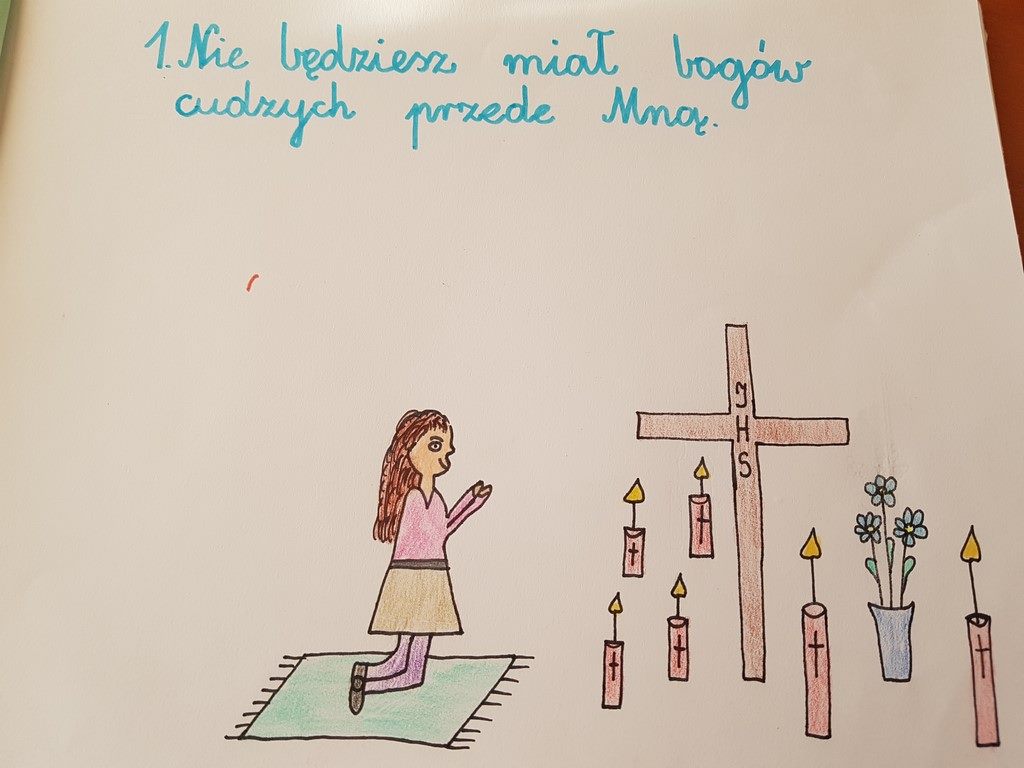 1. Nie będziesz miał bogów
cudzych przede Mną.
J
H
S